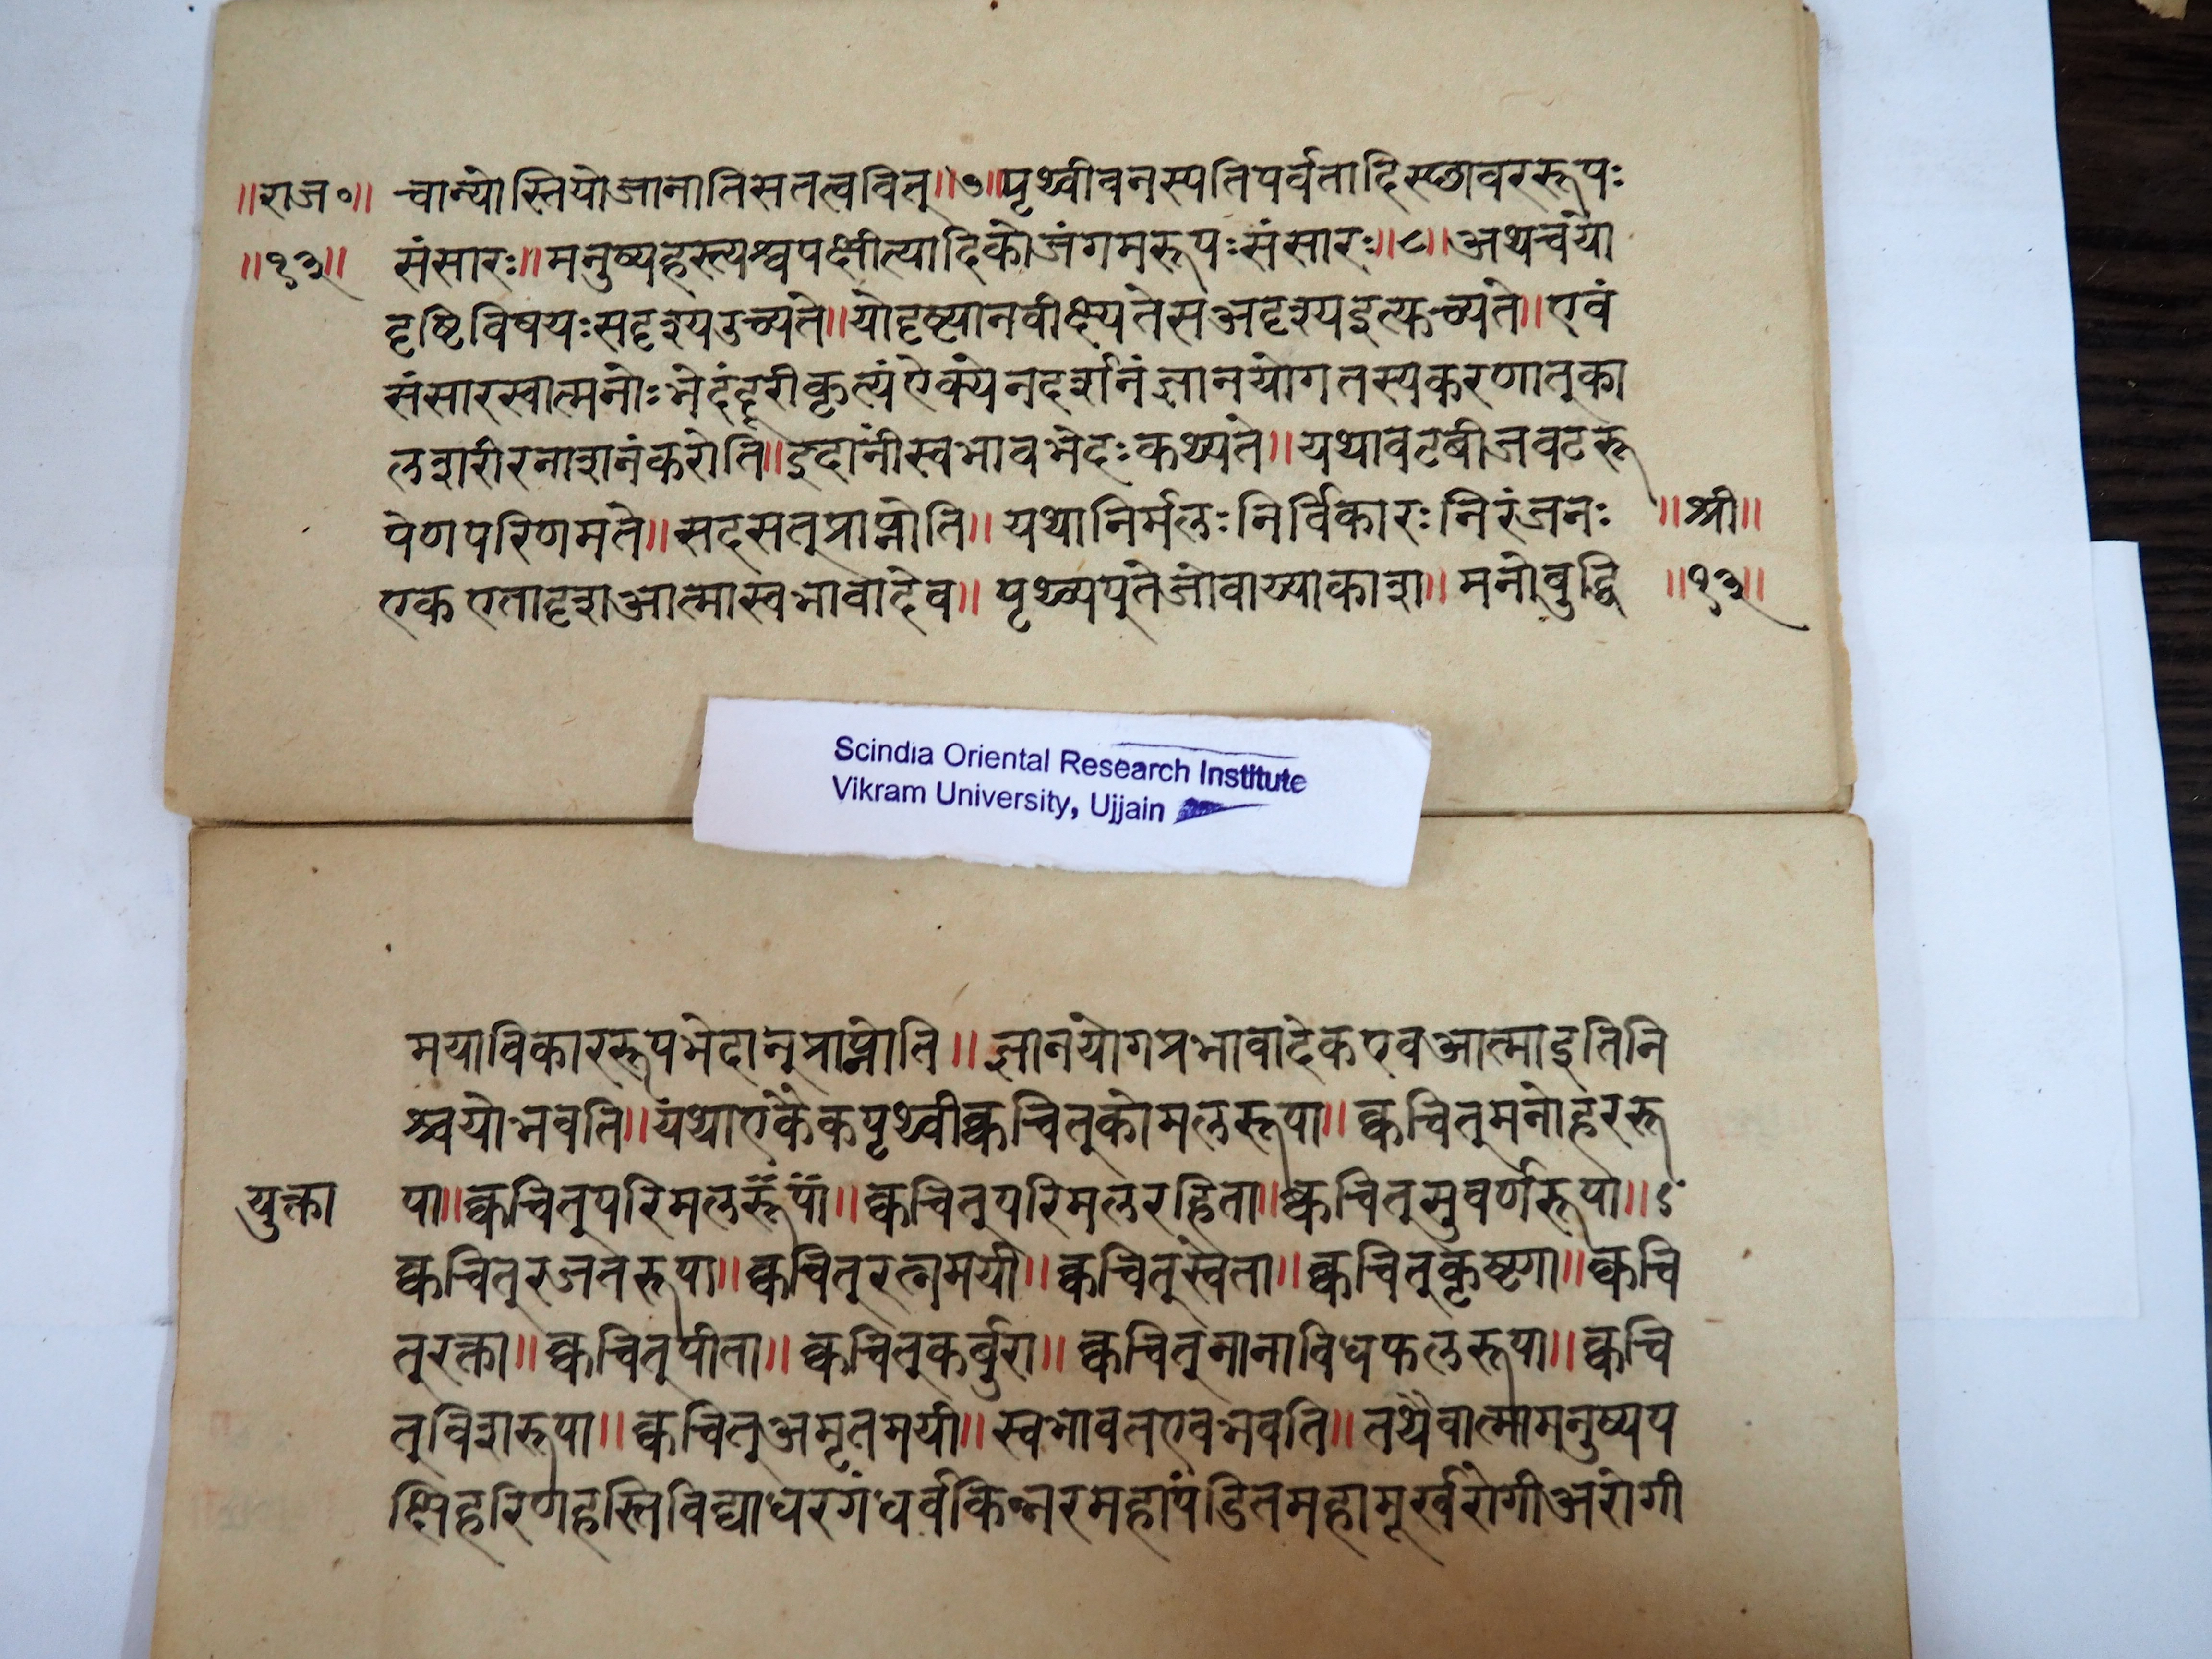 ॥राज॰॥ चान्योस्तियोजानातिसतत्ववित्॥७॥पृथ्वीवनस्पतिपर्वतादिस्छावररूपः
॥१३॥ संसारः॥मनुष्यहस्त्यश्वपक्षीत्यादिकोजंगमरूपःसंसारः॥८॥अथचयो
दृष्टिविषयःसदृश्यउच्यते॥योदृष्ट्यानवीक्ष्यतेसअदृश्यइत्युच्यते॥एवं
संसारस्वात्मनोःभेदंदूरीकृत्यंऐक्येनदर्शनंज्ञानयोगतस्यकरणात्का
लशरीरनाशनंकरोति॥इदानींस्वभावभेदःकथ्यते॥यथावटबीजवटरू
पेणपरिणमते॥सदसत्प्राप्नोति॥यथानिर्मलःनिर्विकारःनिरंजनः ॥श्री॥
एकएतादृशआत्मास्वभावादेव॥पृथ्व्यप्तेजोवाय्याकाश॥मनोबुद्धि ॥१३॥
Scindia Oriental Research Institute
Vikram University, Ujjain
मयाविकाररूपभेदान्प्राप्नोति॥ज्ञानयोगप्रभावादेकएवआत्माइतिनि
श्चयोभवति॥यथाएकैकपृथ्वीक्वचित्कोमलरूपा॥क्वचित्मनोहररू
युक्ता पा॥क्वचित्परिमलरूपा॥क्वचित्परिमलरहिता॥क्वचित्सुवर्णरूपा॥
क्वचित्रजतरूपा॥क्वचित्रत्नमयी॥क्वचित्स्वेता॥क्वचित्कृष्णा॥क्वचि
त्रक्ता॥क्वचित्पीता॥क्वचित्कर्बुरा॥क्वचित्नानाविधफलरूपा॥क्वचि
त्विशरूपा॥क्वचित्अमृतमयी॥स्वभावतएवभवति॥तथैवात्मामनुष्यप
क्षिहरिणहस्तिविद्याधरगंधर्वकिन्नरमहापंडितमहामूर्खरोगीअरोगी